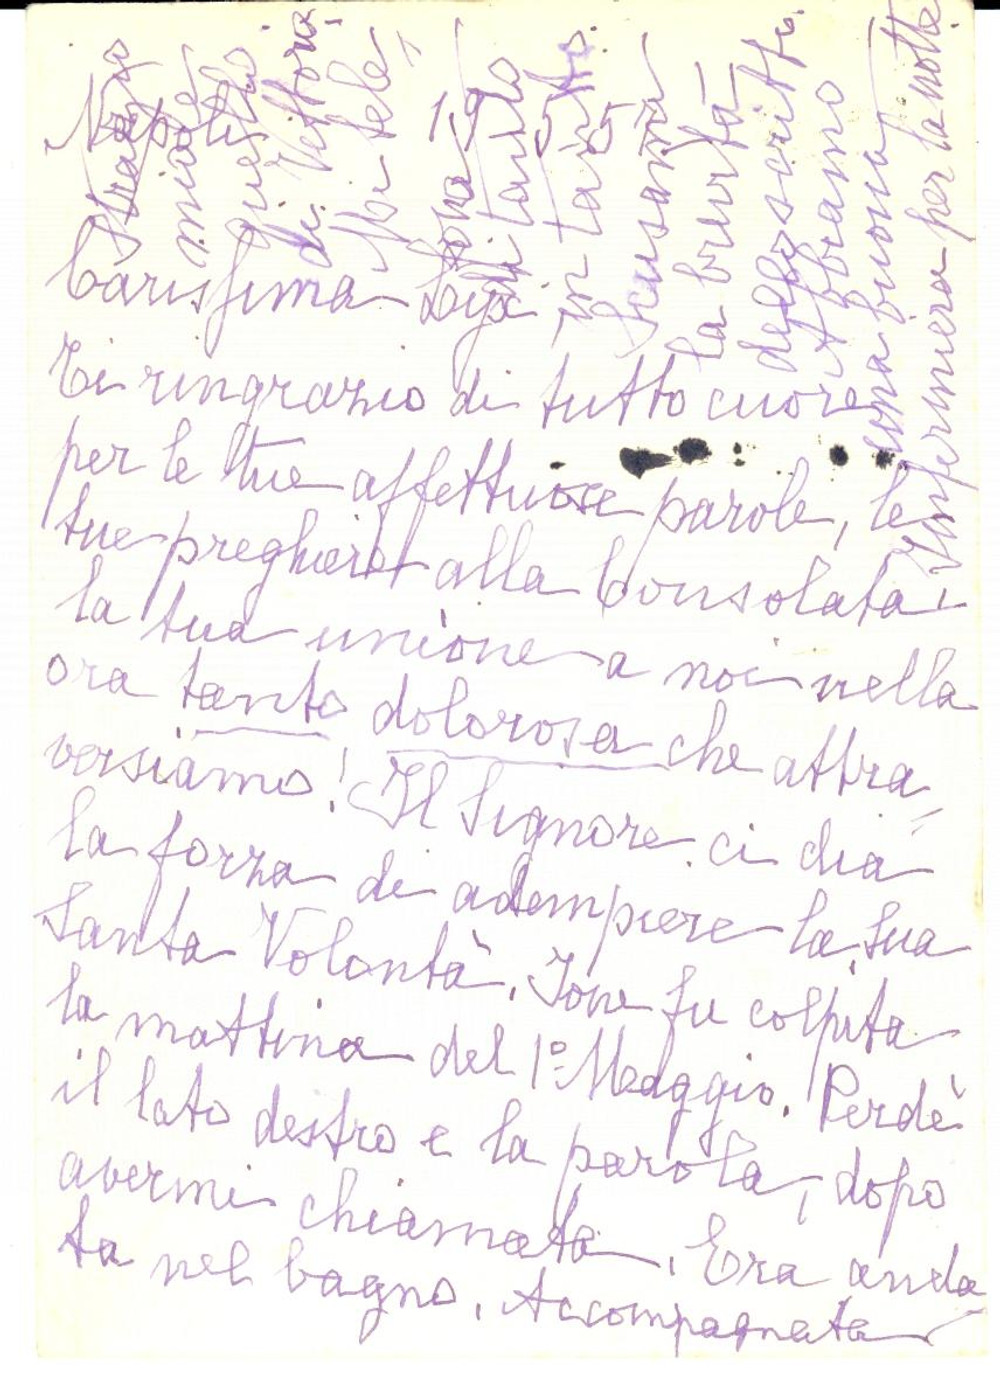 Napoli 19 5 55
Carissima
Ti ringrazio di tutto cuore
per le tue affettuose parole, le
tue preghiere alla Consolata,
la tua unione a noi nella
ora tanto dolorosa che attra=
versiamo! Il Signore ci dia
la forza di adempiere la Sua
Santa Volontà. Ione fu colpita
la mattina del 1° Maggio. Perdè
il lato destro e la parola, dopo
avermi chiamata. Era anda
ta nel bagno. Accompagnata
mia e
questa
di Vittoria.
Abitele
tanto
tanto.
Scusami
la brevità
dello scritto.
Abbiamo
una buona
Infermiera per la notte.